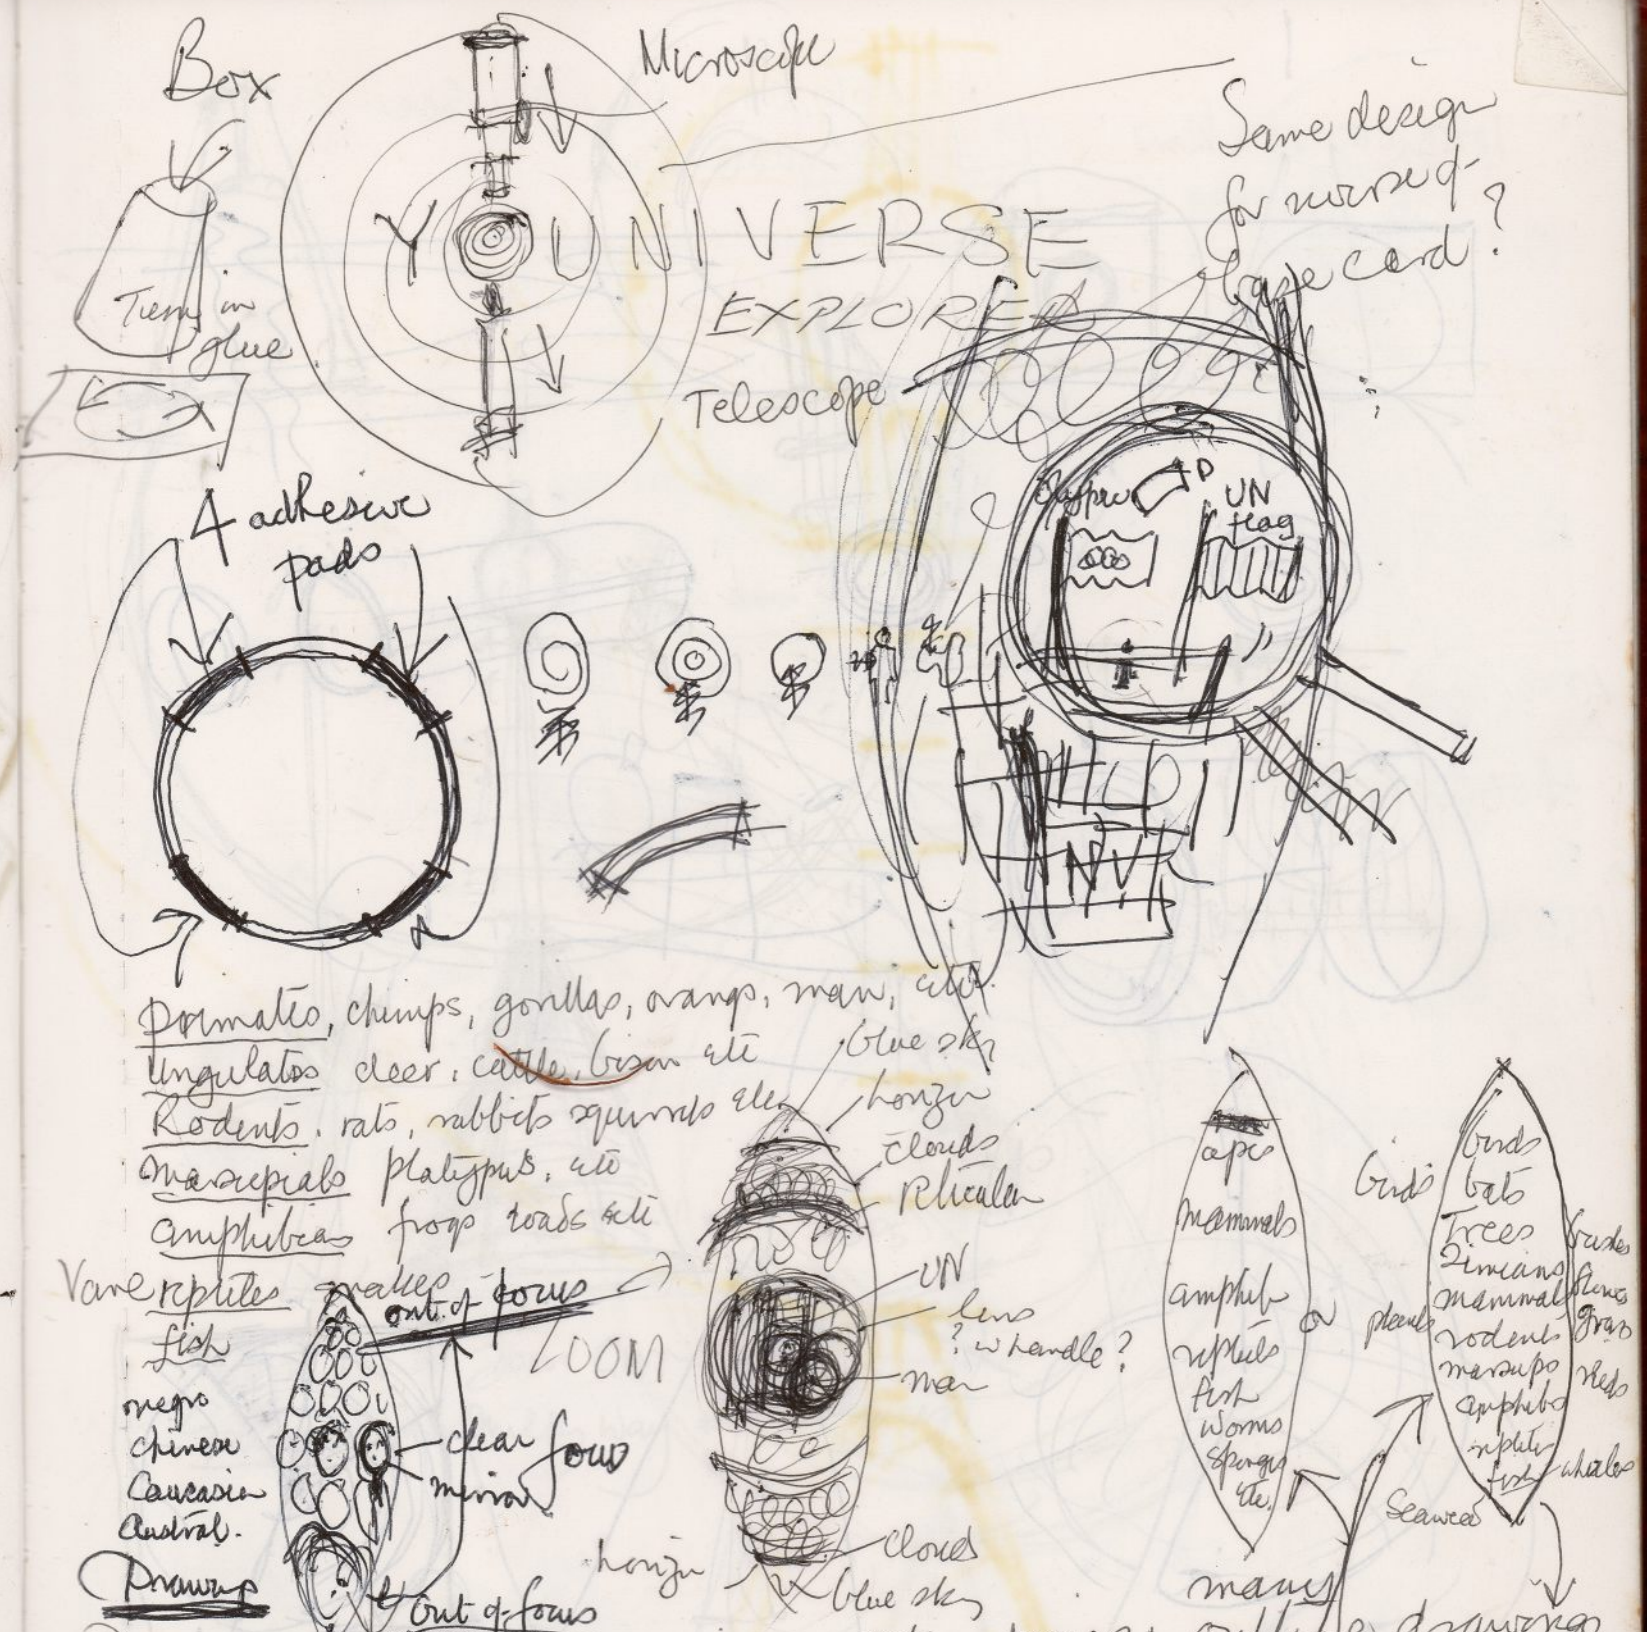 Box
Microscope
Same design
for reverse of
base card?
YOUNIVERSE
EXPLORER
Telescope
in
glue
4 adhesive
pads
UN
flag
Primates, chimps, gorillas, orangs, man, etc.
Ungulates deer, cattle, bison etc
Rodents. rats, rabbits squirrels etc
Marsupials platypus, etc
amphibians frogs toads etc
reptiles snakes
fish
out of focus
ZOOM
negro
chinese
Caucasian
Austral.
clear focus
mirror
out of focus
blue sky
horizon
clouds
UN
lens
? w handle?
man
clouds
blue sky
horizon
apes
mammals
amphib
reptiles
fish
worms
sponges
etc.
or
birds
plants
birds
bats
Trees
Simians
mammals
rodents
marsups
amphibs
reptiles
fish
grass
reds
whales
Seaweed
many
drawings